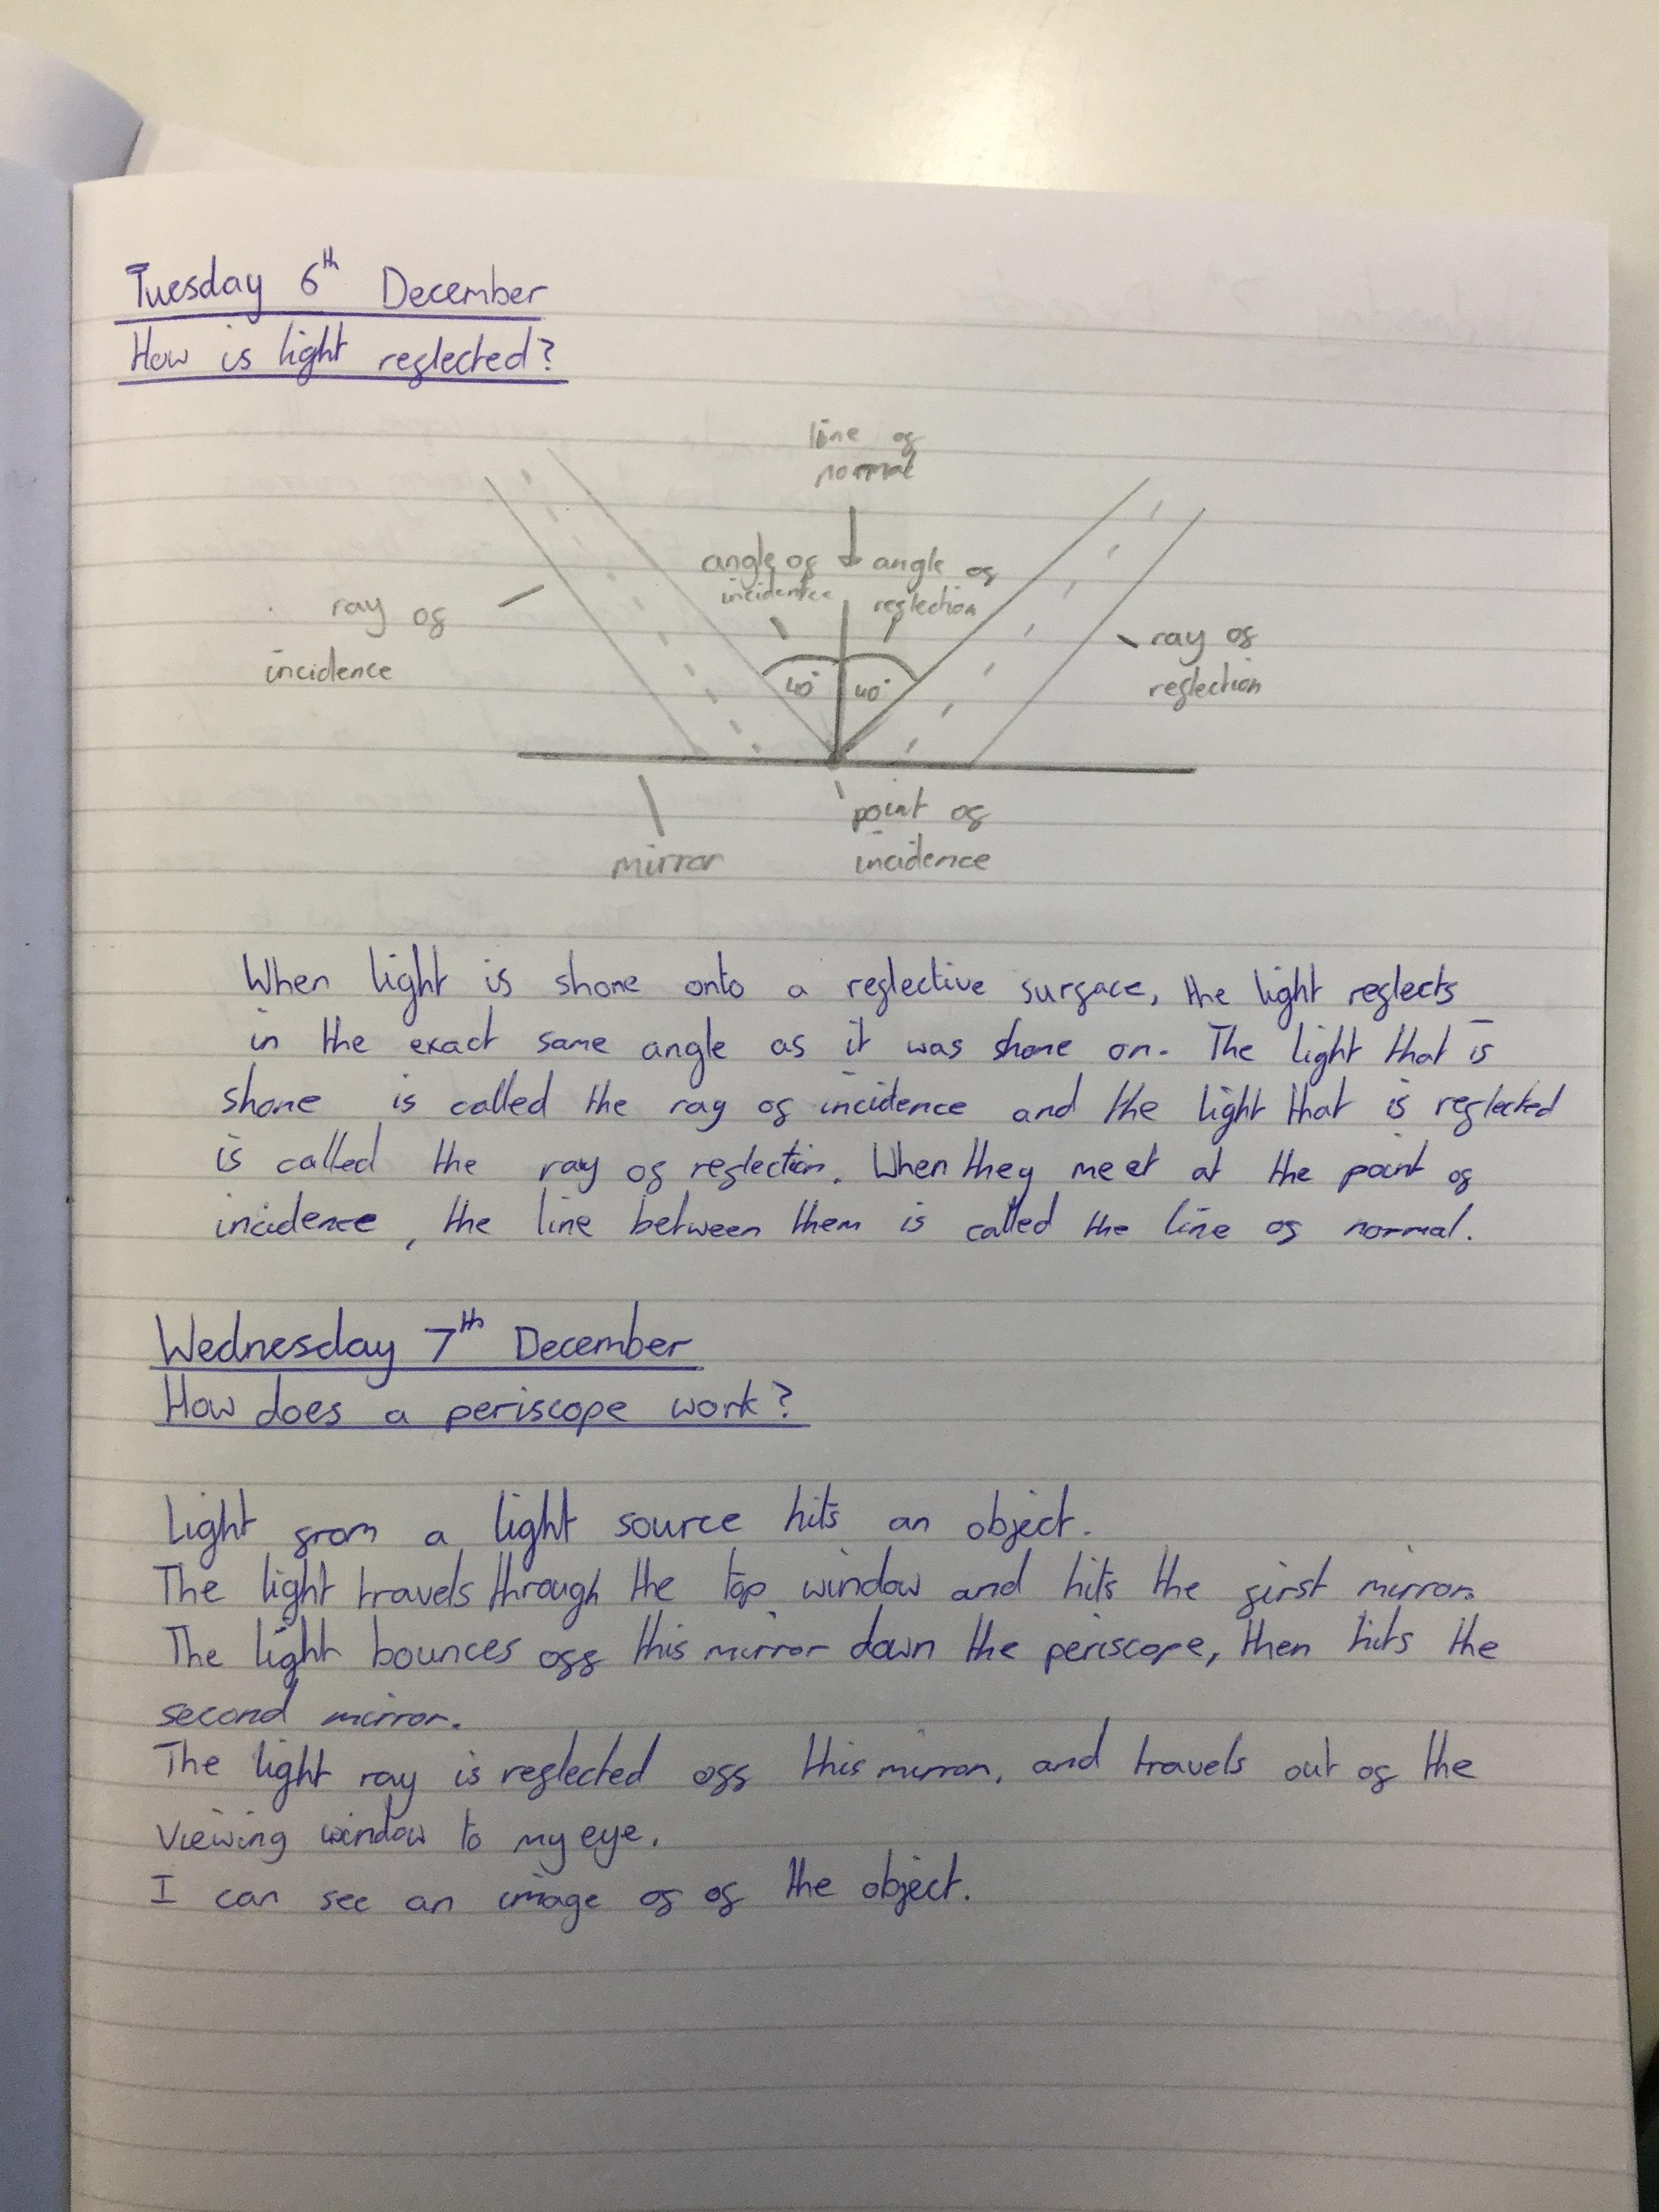 Tuesday 6th December
How is light reflected?
line of
normal
angle of
incidence
angle of
reflection
ray of
incidence
ray of
reflection
40° 40°
point of
incidence
mirror
When light is shone onto a reflective surface, the light reflects
in the exact same angle as it was shone on. The light that is
shone is called the ray of incidence and the light that is reflected
is called the ray of reflection. When they meet at the point of
incidence, the line between them is called the line of normal.
Wednesday 7th December
How does a periscope work?
Light from a light source hits an object.
The light travels through the top window and hits the first mirror.
The light bounces off this mirror down the periscope, then hits the
second mirror.
The light ray is reflected off this mirror, and travels out of the
viewing window to my eye.
I can see an image of of the object.